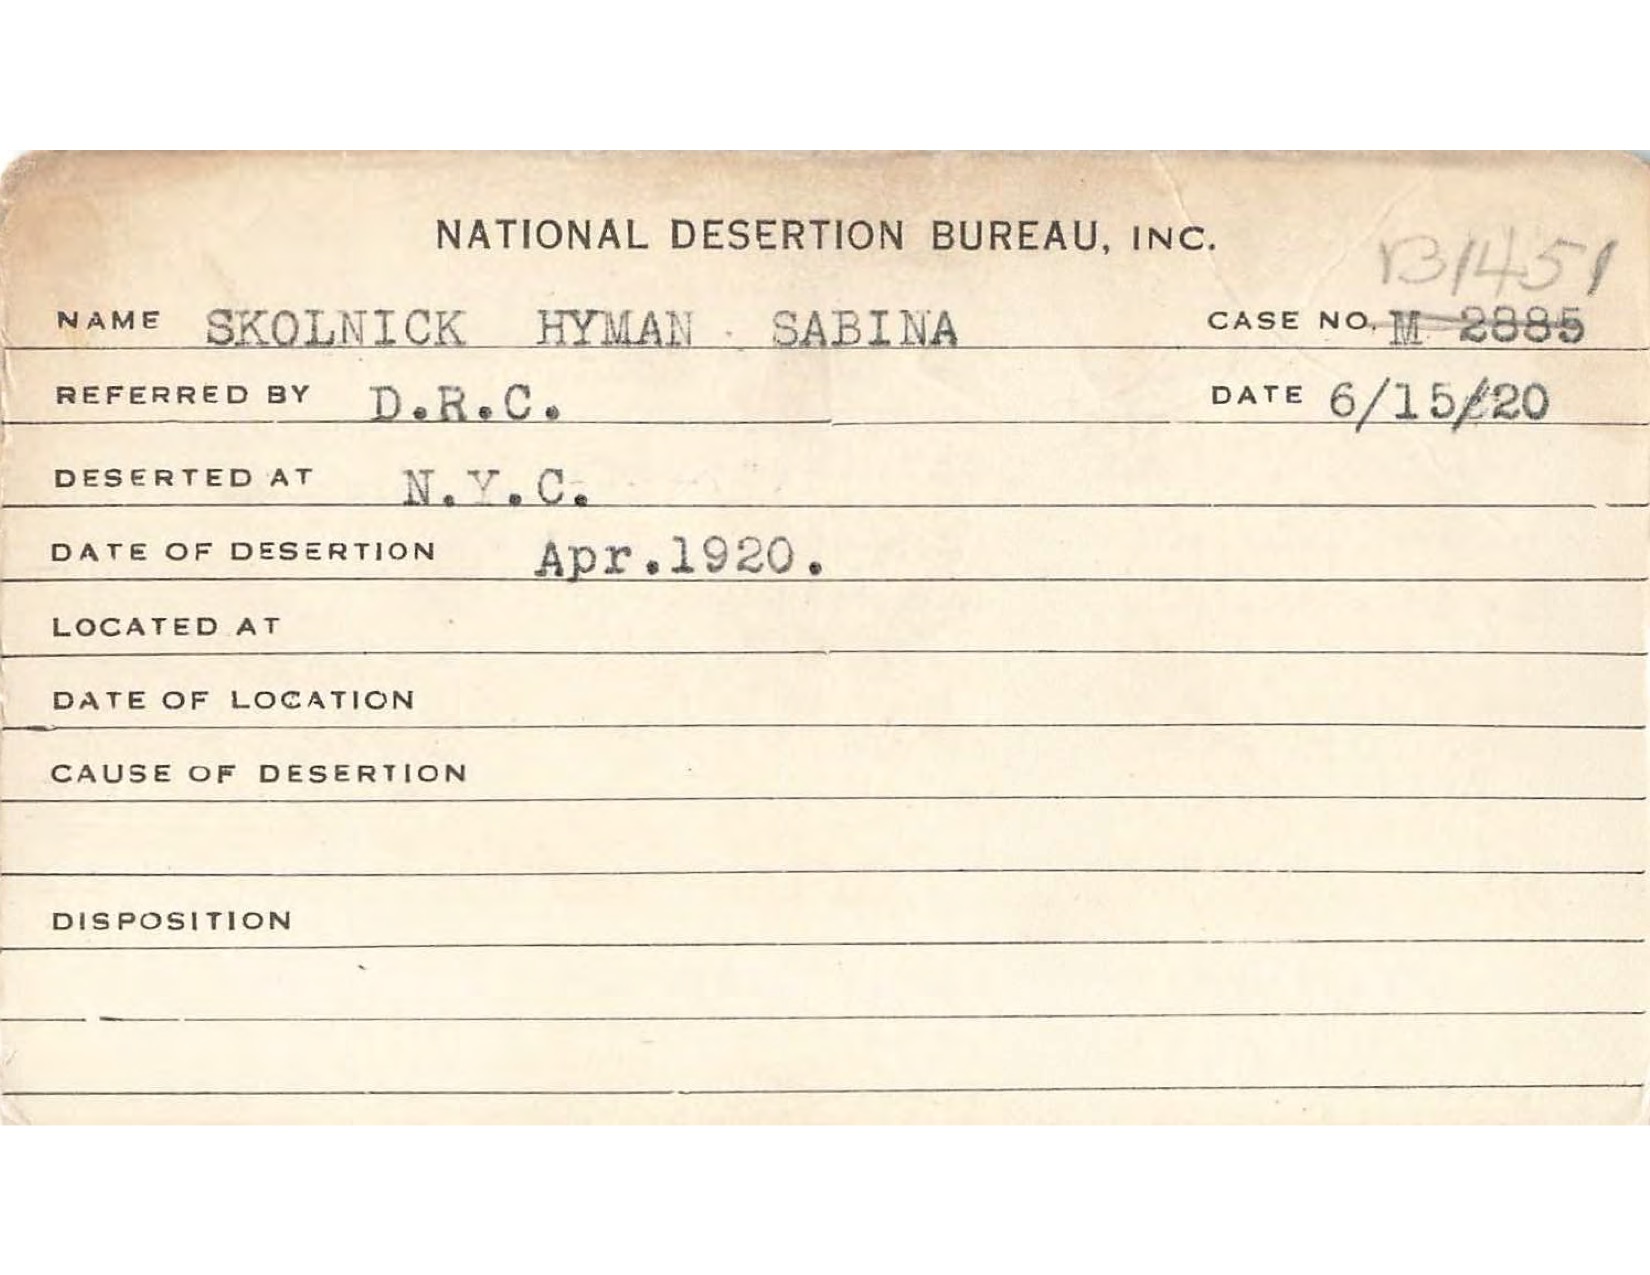 NATIONAL DESERTION BUREAU, INC.
B1451
NAME SKOLNICK HYMAN SABINA CASE NO. M 2885
REFERRED BY D.R.C. DATE 6/15/20
DESERTED AT N.Y.C.
DATE OF DESERTION Apr.1920.
LOCATED AT
DATE OF LOCATION
CAUSE OF DESERTION
DISPOSITION